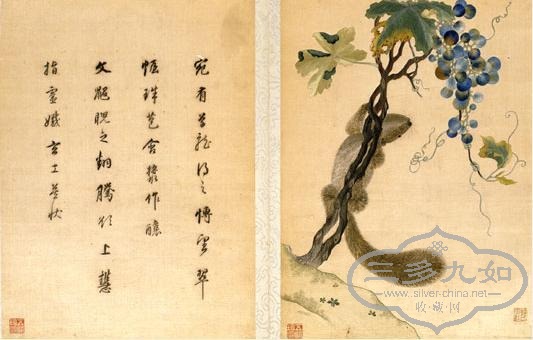 宛有草龍得之博望翠
珠苞含漿作釀
文鼯睨之翱騰欲上慧
指靈孅工莫狀
三多九如
www.silver-china.net
收藏·网